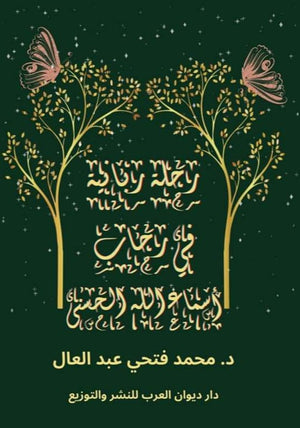 رحلة ربانية
في رحاب
أسماء الله الحسنى
د. محمد فتحي عبد العال
دار ديوان العرب للنشر والتوزيع